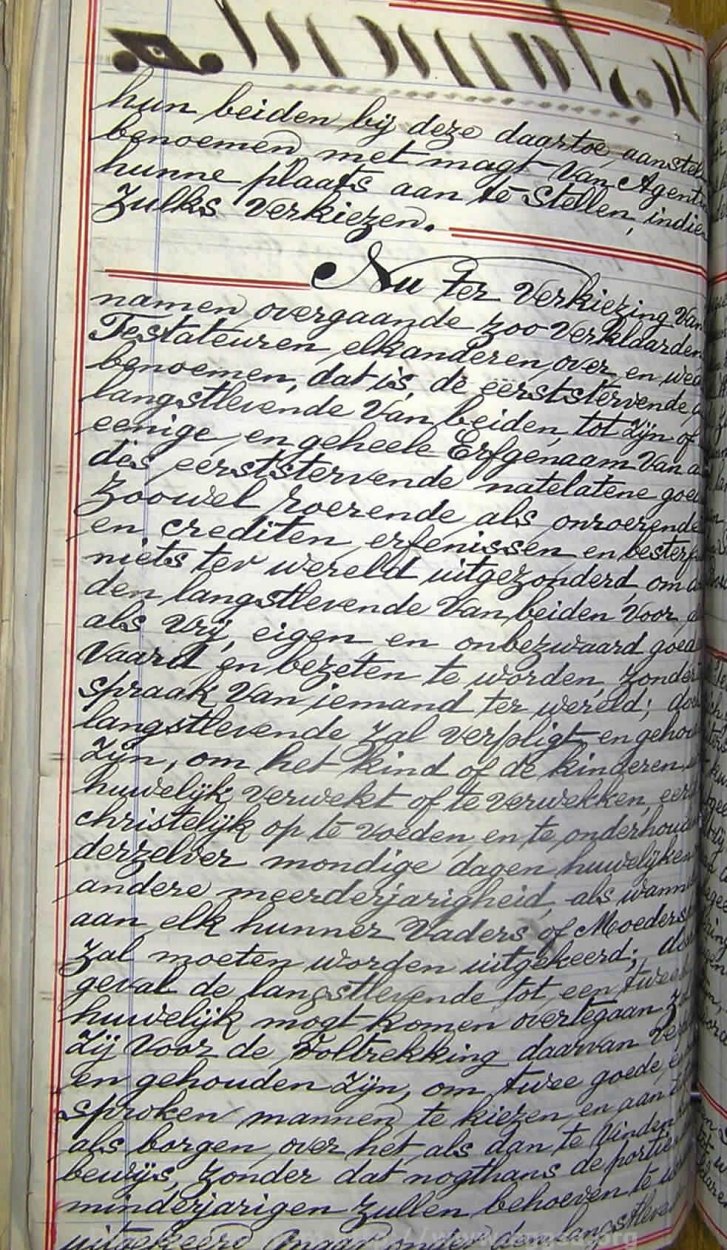 hun beiden bij deze daartoe aanstel
benoemen met magt van Agent
hunne plaats aan te stellen, indie
zulks verkiezen.
Nu ter verkiezing van
namen overgaande zoo verklaarden
Testateuren elkanderen over en wed
benoemen, dat is, de eerststervende d
langstlevende van beiden tot zijn of
eenige en geheele Erfgenaam van a
des eerststervende natelatene goed
zoowel roerende als onroerende
en crediten, erfenissen en besterf
niets ter wereld uitgezonderd, om d
den langstlevende van beiden voor, a
als vrij, eigen en onbezwaard goed
vaard en bezeten te worden, zonder
spraak van iemand ter wereld; do
langstlevende zal verpligt en gehou
zijn, om het kind of de kinderen
huwelijk verwekt of te verwekken, eerl
christelijk op te voeden en te onderhoud
derzelver mondige dagen, huwelijken
andere meerderjarigheid, als wann
aan elk hunner Vaders of Moeders
zal moeten worden uitgekeerd;
geval de langstlevende tot een tweed
huwelijk mogt komen overtegaan z
zij voor de Voltrekking daarvan ver
en gehouden zijn, om twee goede e
sproken mannen te kiezen en aan te
als borgen over het als dan te vinden
bewijs, zonder dat nogthans de portie
minderjarigen zullen behoeven te w
uitgekeerd maar onder den langstleve